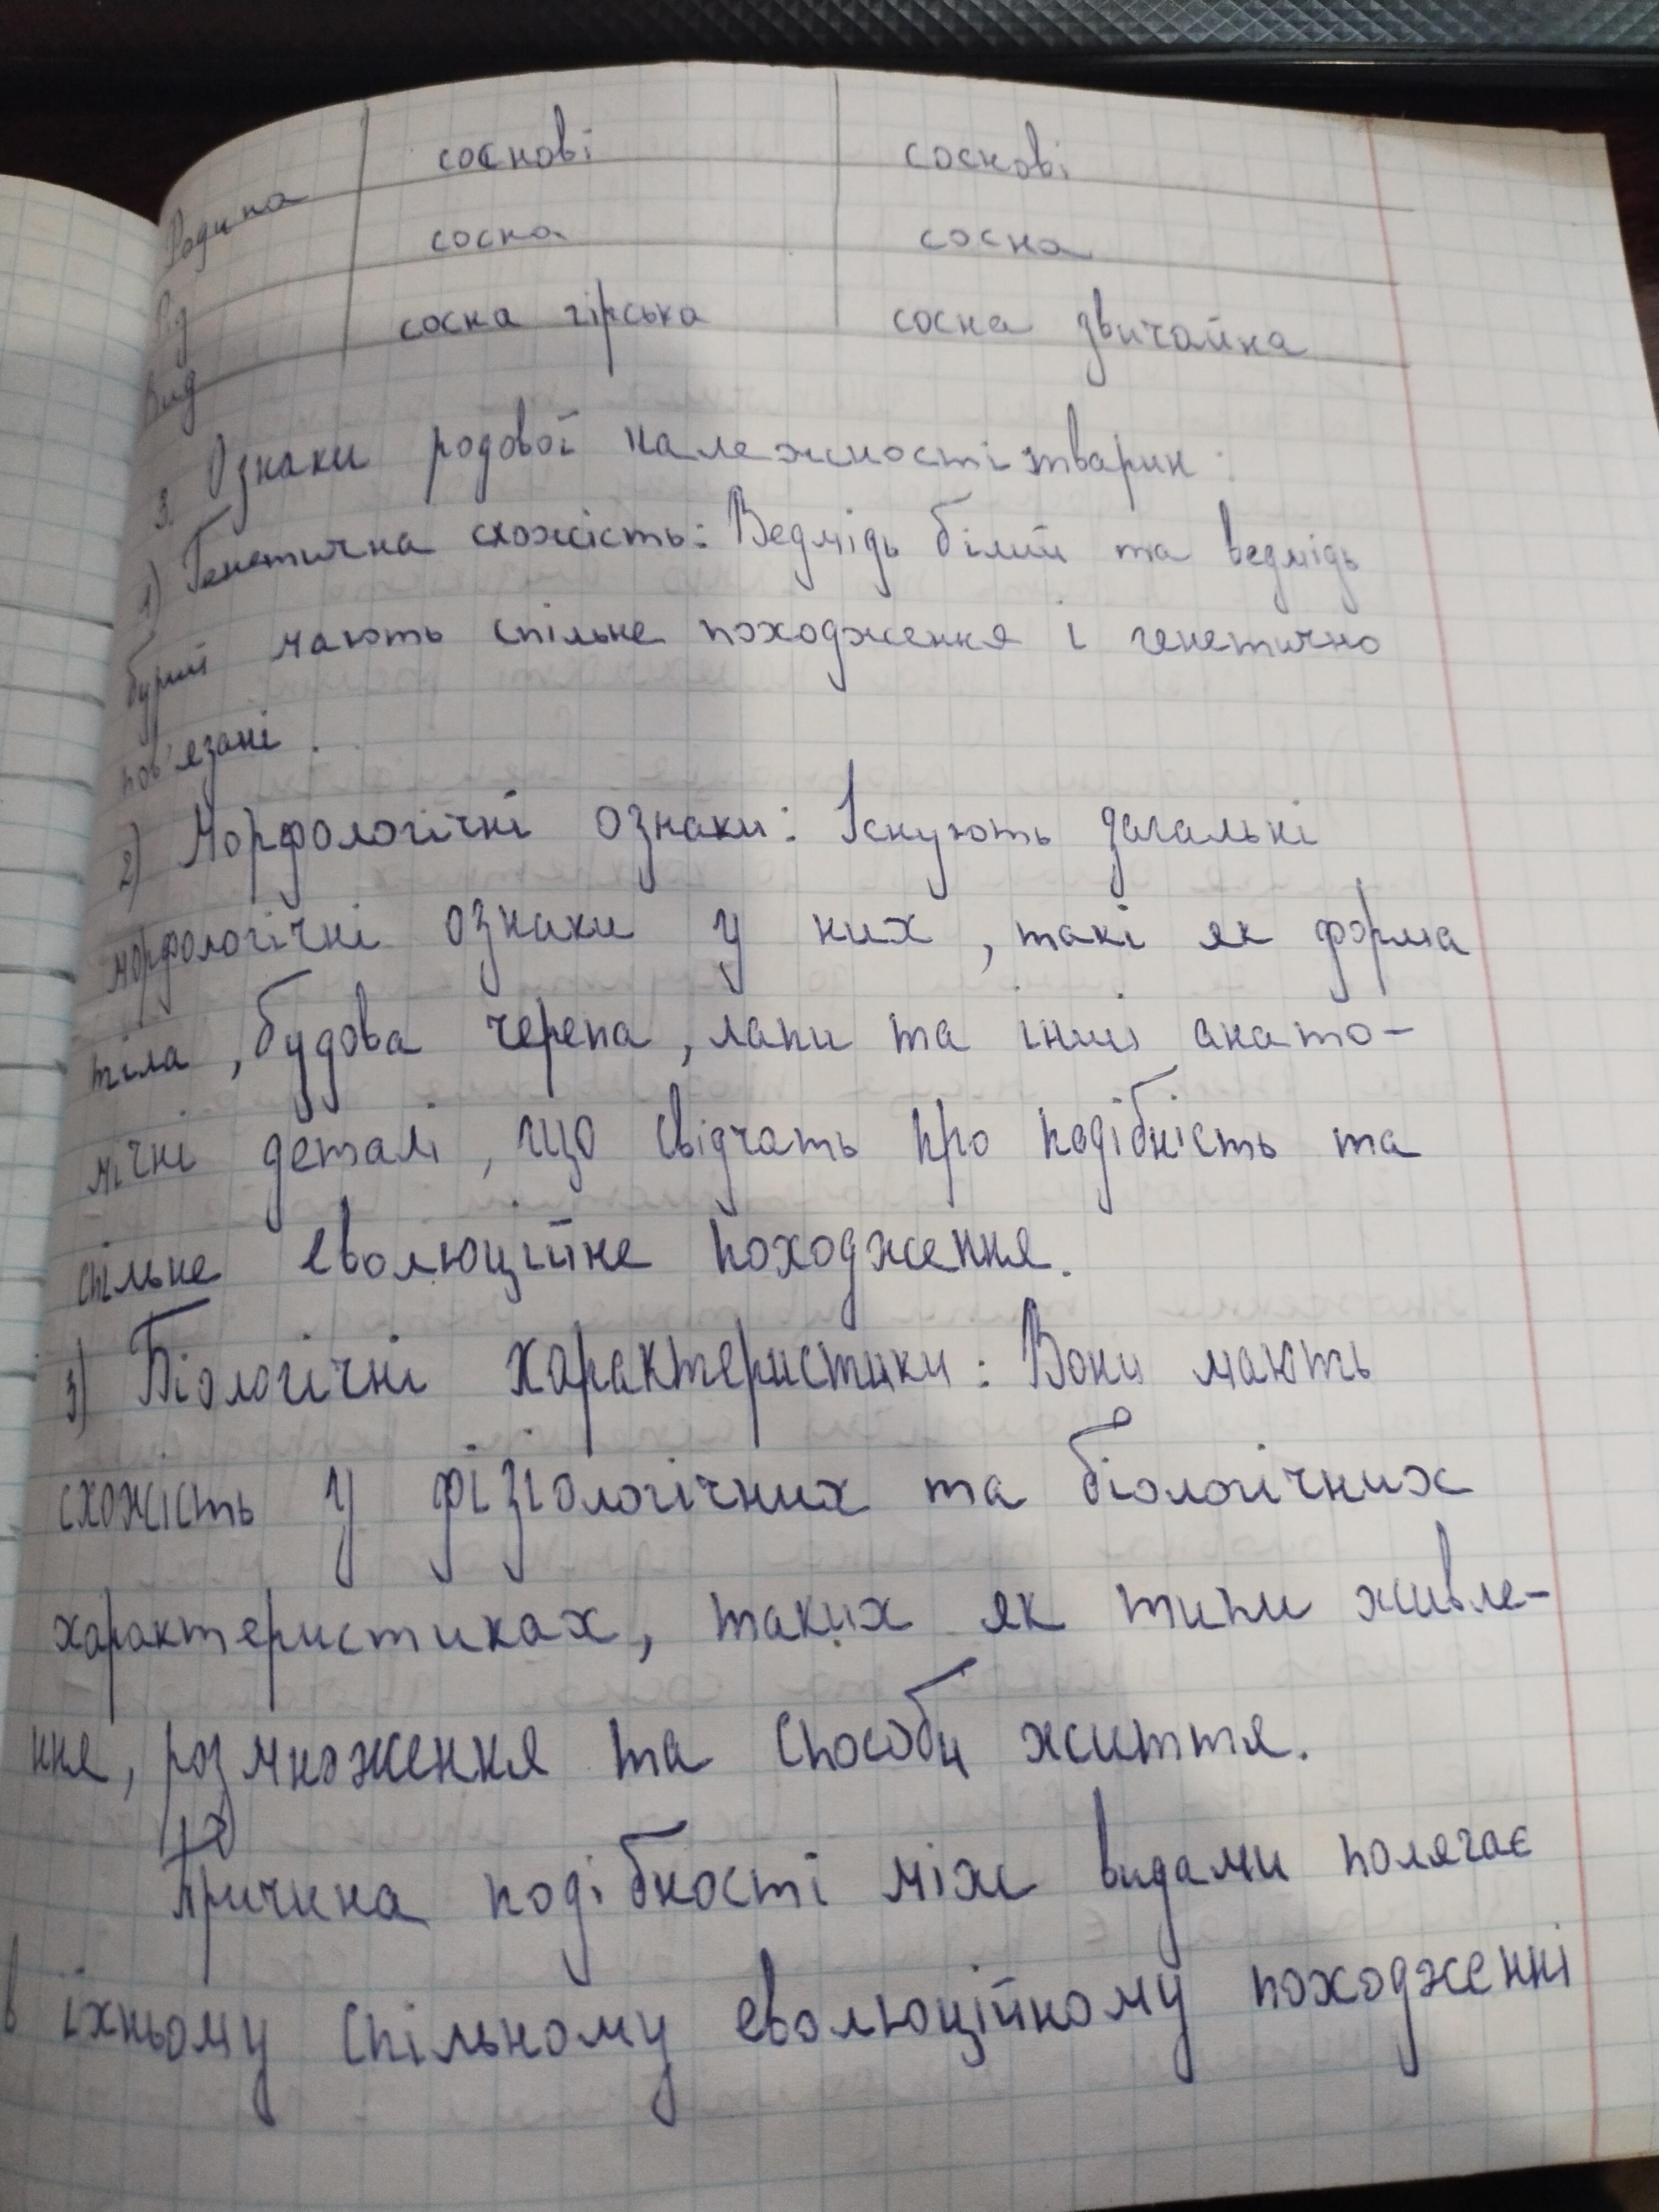 Родина соснові соснові
Рід сосна сосна
Вид сосна гірська сосна звичайна
3. Ознаки родової належності тварин:
1) Генетична схожість: Ведмідь білий та ведмідь
бурий мають спільне походження і генетично
пов'язані.
2) Морфологічні ознаки: Існують загальні
морфологічні ознаки у них, такі як форма
тіла, будова черепа, лапи та інші анато-
мічні деталі, що свідчать про подібність та
спільне еволюційне походження.
3) Біологічні характеристики: Вони мають
схожість у фізіологічних та біологічних
характеристиках, таких як типи живле-
ння, розмноження та способи життя.
Причина подібності між видами полягає
в їхньому спільному еволюційному походженні